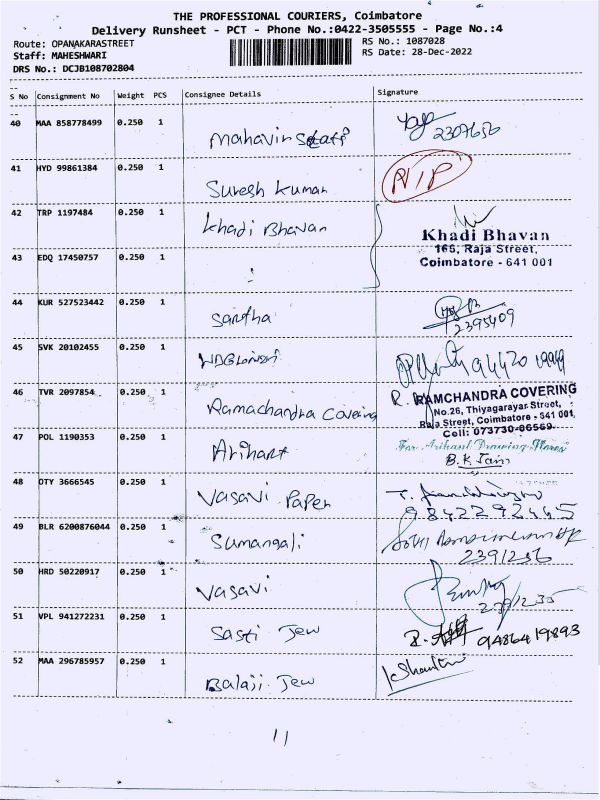 THE PROFESSIONAL COURIERS, Coimbatore
Delivery Runsheet - PCT - Phone No.:0422-3505555 - Page No.:4
Route: OPANAKARASTREET
Staff: MAHESHWARI
DRS No.: DCJB108702804
RS No.: 1087028
RS Date: 28-Dec-2022
S No Consignment No Weight PCS Consignee Details Signature
40 MAA 858778499 0.250 1 Mahavir
2307656
41 HYD 99861384 0.250 1 Suresh Kumar
N/P
42 TRP 1197484 0.250 1 Khadi Bhavan
Khadi Bhavan
165, Raja Street,
Coimbatore - 641 001
43 EDQ 17450757 0.250 1
44 KUR 527523442 0.250 1 Santha
2395409
45 SVK 20102455 0.250 1
94420 19949
46 TVR 2097854 0.250 1 Ramachandra Covering
RAMCHANDRA COVERING
No.26, Thiyagarayar Street,
Raja Street, Coimbatore - 641 001,
Cell: 073730-06569
47 POL 1190353 0.250 1 Arihant
For Arihant
B.K Jain
48 OTY 3666545 0.250 1 Vasavi Paper
9842292465
49 BLR 6200876044 0.250 1 Sumangali
2391256
50 HRD 50220917 0.250 1 Vasavi
51 VPL 941272231 0.250 1 Sasti Jew
9486419893
52 MAA 296785957 0.250 1 Balaji Jew
11